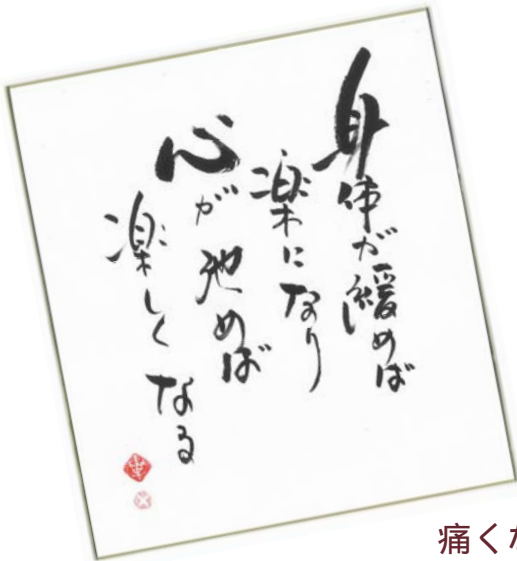 身体が緩めば
楽になり
心が弛めば
楽しくなる
痛く